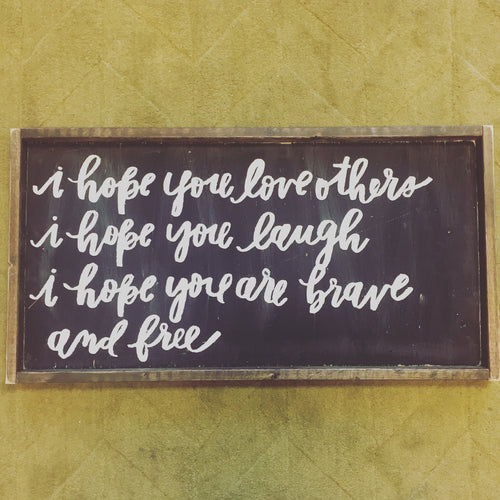 i hope you love others
i hope you laugh
i hope you are brave
and free